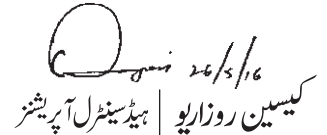 26/5/16
کیسین روزاریو | ہیڈ سینٹرل آپریشنز